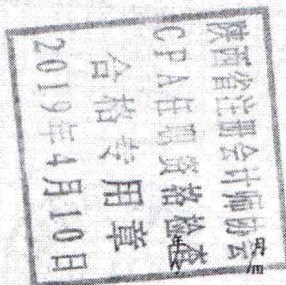 陕西省注册会计师协会
CPA任职资格检查
合格专用章
2019年4月10日
年
月
/m